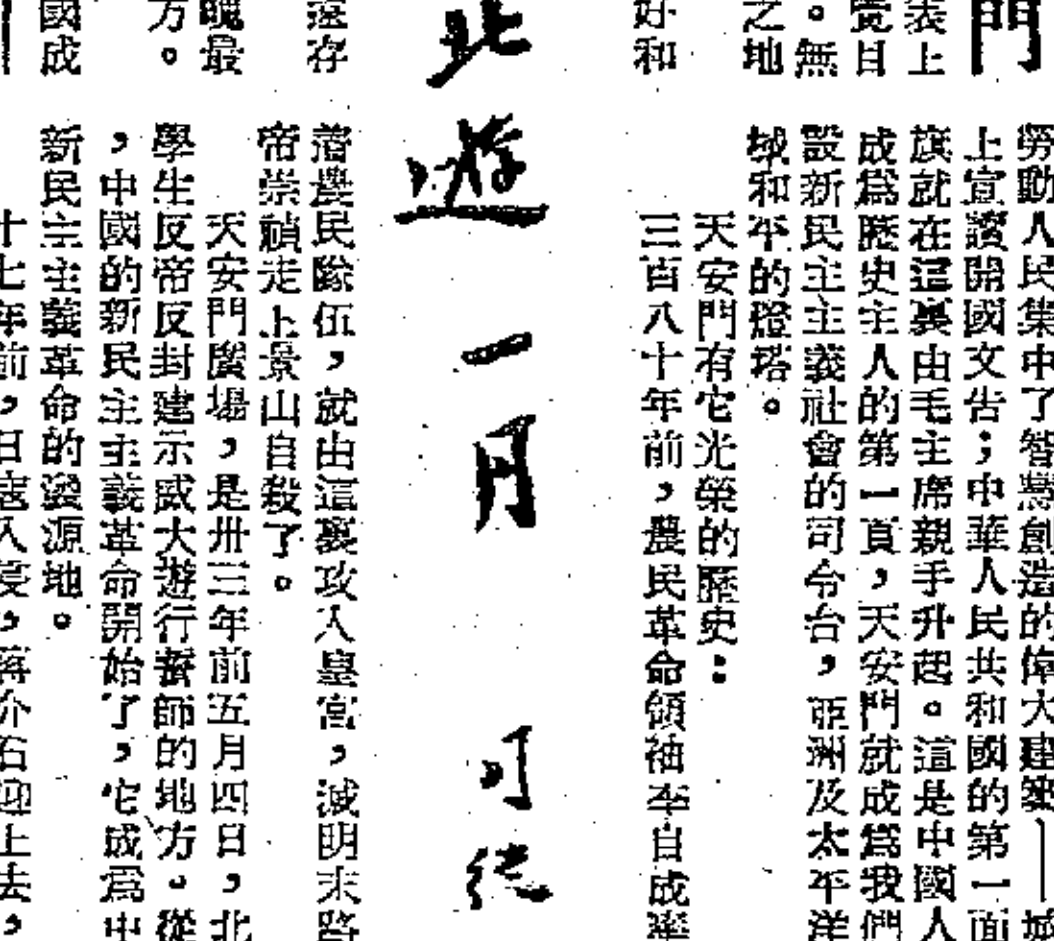 門
表上
覺目
。無
之地
好和
遠存
最
方。
國成
勞動人民集中了智慧創造的偉大建築——城
上宣讀開國文告；中華人民共和國的第一面
旗就在這裏由毛主席親手升起。這是中國人
成爲歷史主人的第一頁，天安門就成爲我們
設新民主主義社會的司令台，亞洲及太平洋
域和平的燈塔。
天安門有它光榮的歷史：
三百八十年前，農民革命領袖李自成率
北遊一月 司徒
著農民隊伍，就由這裏攻入皇宮，滅明末
帝崇禎走上景山自殺了。
天安門廣場，是卅三年前五月四日，北
學生反帝反封建示威大遊行誓師的地方。從
，中國的新民主主義革命開始了，它成爲中
新民主主義革命的發源地。
十七年前，日寇入侵，蔣介石迎上去，